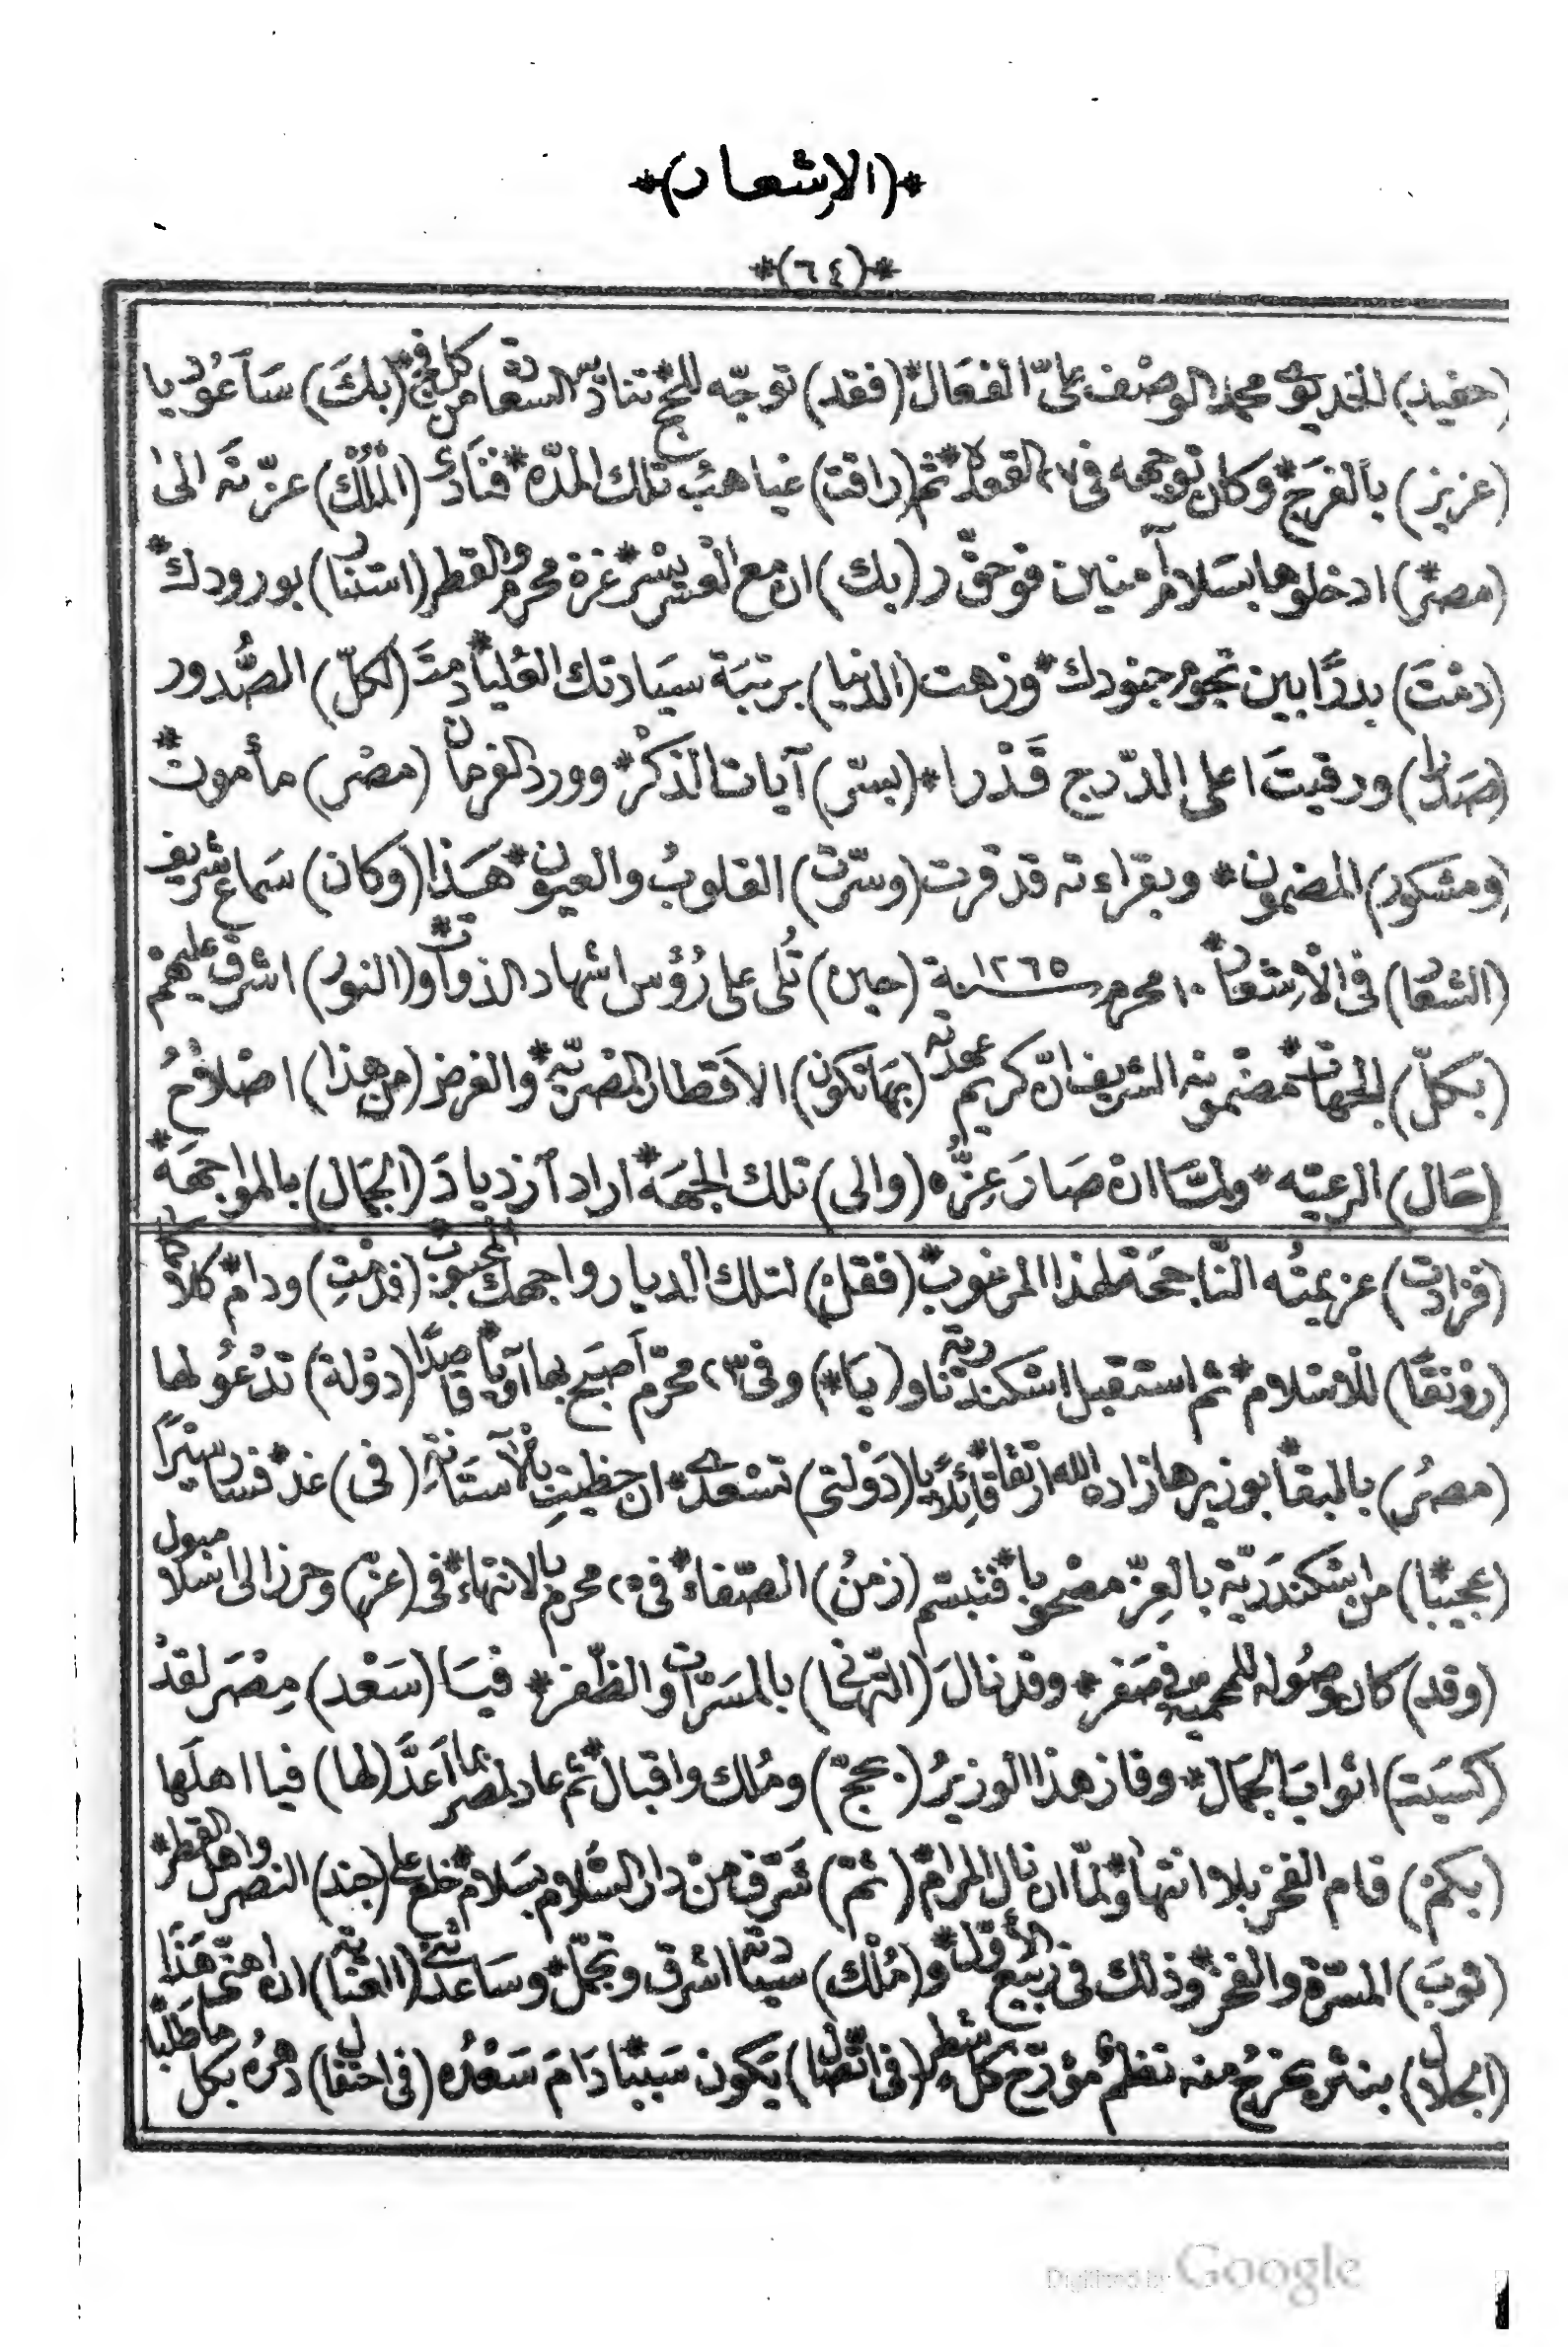 *(الإشعار)*
*(٦٤)*
(حفيد) الخديوي محمد الوصف علىّ الفعَال * (فقد) توجّه للحج تناديه السعادة من كل فج * (بكَ) سَأعُود يا
(عزيز) بالفرَج * وكان توجهه فى ٢٧ القعدة * ثم (راقت) غياهبُ تلك المدّه * فنَادَى (المُلْكُ) عزّته الى
(مصرَ) ادخلوها بسَلام آمنين فوحقّ ر (بك) ان مع العسر يسْر * غرة محرم والقطر (استنار) بورودك *
(دمْتَ) بدرًا بين نجوم جنودك * وزهت (الدنيا) برتبَة سيَادتك العُليا * دمتَ (لكلّ) الصُّدور
(صَدرا) ورقيتَ اعلى الدّرج قَدْرا * (بسرّ) آيات الذكرْ * وورد الفرمان (مصْر) مأمون *
(ومشكور) المضمون * وبقراءته قد قرت (وسّرت) القلوبُ والعيون * هَذا (وكان) سَماع شريف
(الشعار) فى الْاِشعار * ١٠ محرم سنة ١٢٦٥ (حين) تُلى على رُؤس اشهاد الذوات * و (النور) اشرق عليهمْ
(بكلّ) الجهات * مضمونه الشريف انّ كريم عهدته (بهَا تكون) الاَقطار المصْريّه * والغرض (من هذا) اصْلاحُ
(حَال) الرعيّه * ولمَّا انْ صَارَ عِزُّه (والى) تلك الجهَة * اراد اَزدياد (الجَمال) بالمواجهَة *
(فزادت) عزيمتُه النّاجحَة لهذا المرغوبْ * (فقلْ) لتلك الديار واجهك المحبوب * (قدْمتِ) ودام *
(رَوْنقًا) للاسْلام * ثم استقبل اسْكندرية نا و (يَا *) وفى ٢٣ محرّم اَصبَح بها آويا * قاصدًا (دوْلة) تدْعُو لها
(مصرُ) بالبقا * بوزيرها زاده الله ارتقا * قائِلاً يا (دَوْلتى) تسْعدى * ان حظيتِ بالآستانة (فى) غد * فسار سيْرًا
(عجيبًا *) من اسْكندَريّة بالعِزّ مصْحُوبا * فتبسّم (زمنُ) الصّفاء * فى ٢٥ محرم بالانتهاء * فى (عزّ) وحرز الى اسلامبول
(وقد) كان وصُوله للمحميه فى صَفر * وقدْ نالَ (التّهانى) بالمسَرّات والظّفر * فيَا (سَعْد) مِصْرَ لقدْ
(كُسيَت) اثوابَ الجمَال * وفاز هذا الوزيرُ (بحجّ) ومُلك واقبال * ثم عاد لمصر بما اَعدَّ (لها) فيا اهلَها
(بكمْ) قام الفخرُ بلا انتها * ولمّا ان نال المرامْ * (ثمّ) شَرّف منْ دار السَّلام بسَلام * خلع على (جند) النصر واهل القطر *
(ثوبَ) المسّرة والفخرْ * وذلك فى ربيع الأوّل * و (مُلْك) سيَادته اشرق وتجمّل * وسَاعدَتْنى (العنَاية) ان اهنّى هَذَا
(الجلال) بنثر يخرجُ منه نظم * مؤرّخ كل شطر * (فى اتّصال) يَكون سَببًا * دَامَ سَعْدُه (فى احتفال) دهْرُه بكل ما طَلبَا
Digitized by Google